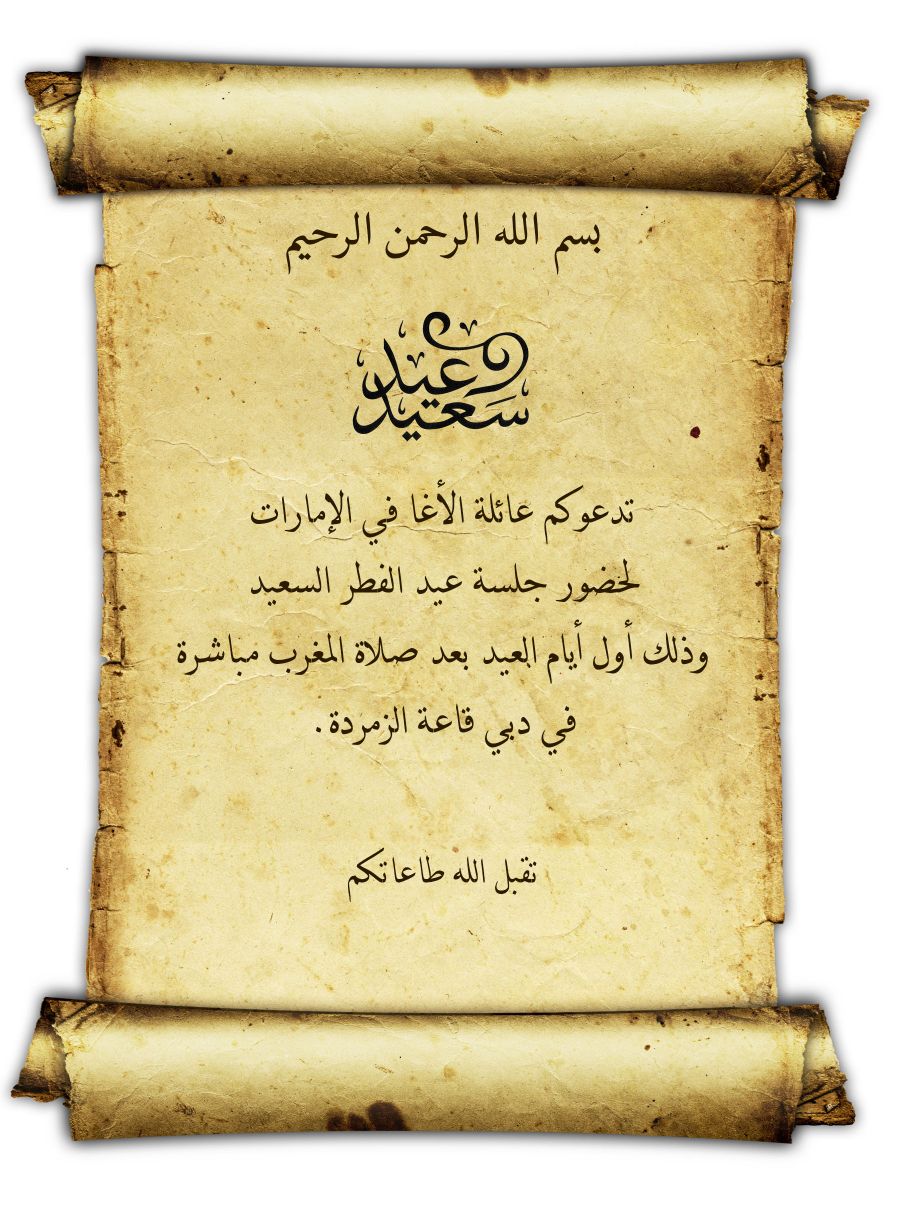 بسم الله الرحمن الرحيم
عيد
سعيد
تدعوكم عائلة الأغا في الإمارات
لحضور جلسة عيد الفطر السعيد
وذلك أول أيام العيد بعد صلاة المغرب مباشرة
في دبي قاعة الزمردة .
تقبل الله طاعاتكم